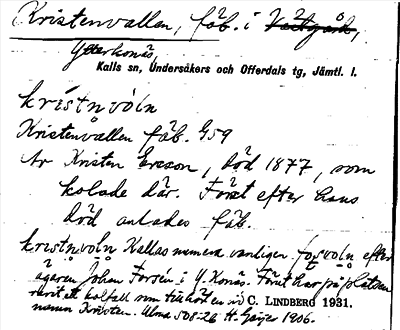 Kristenvallen, fäb. i Västgård,
Ytterkonäs,
Kalls sn, Undersåkers och Offerdals tg, Jämtl. l.
krístnvòln
Kristenvallen fäb. G59
Av Kristen Ersson, död 1877, som
kolade där. Först efter hans
död anlades fäb.
kristnvòln Kallas numera vanligen efter
ägaren Johan Forsén i Y. Konäs. Först har på platsen
varit ett kolfall som tillhört en vid
namn Kristen. Ulma 508:26 H. Geijer 1906.
C. LINDBERG 1931.